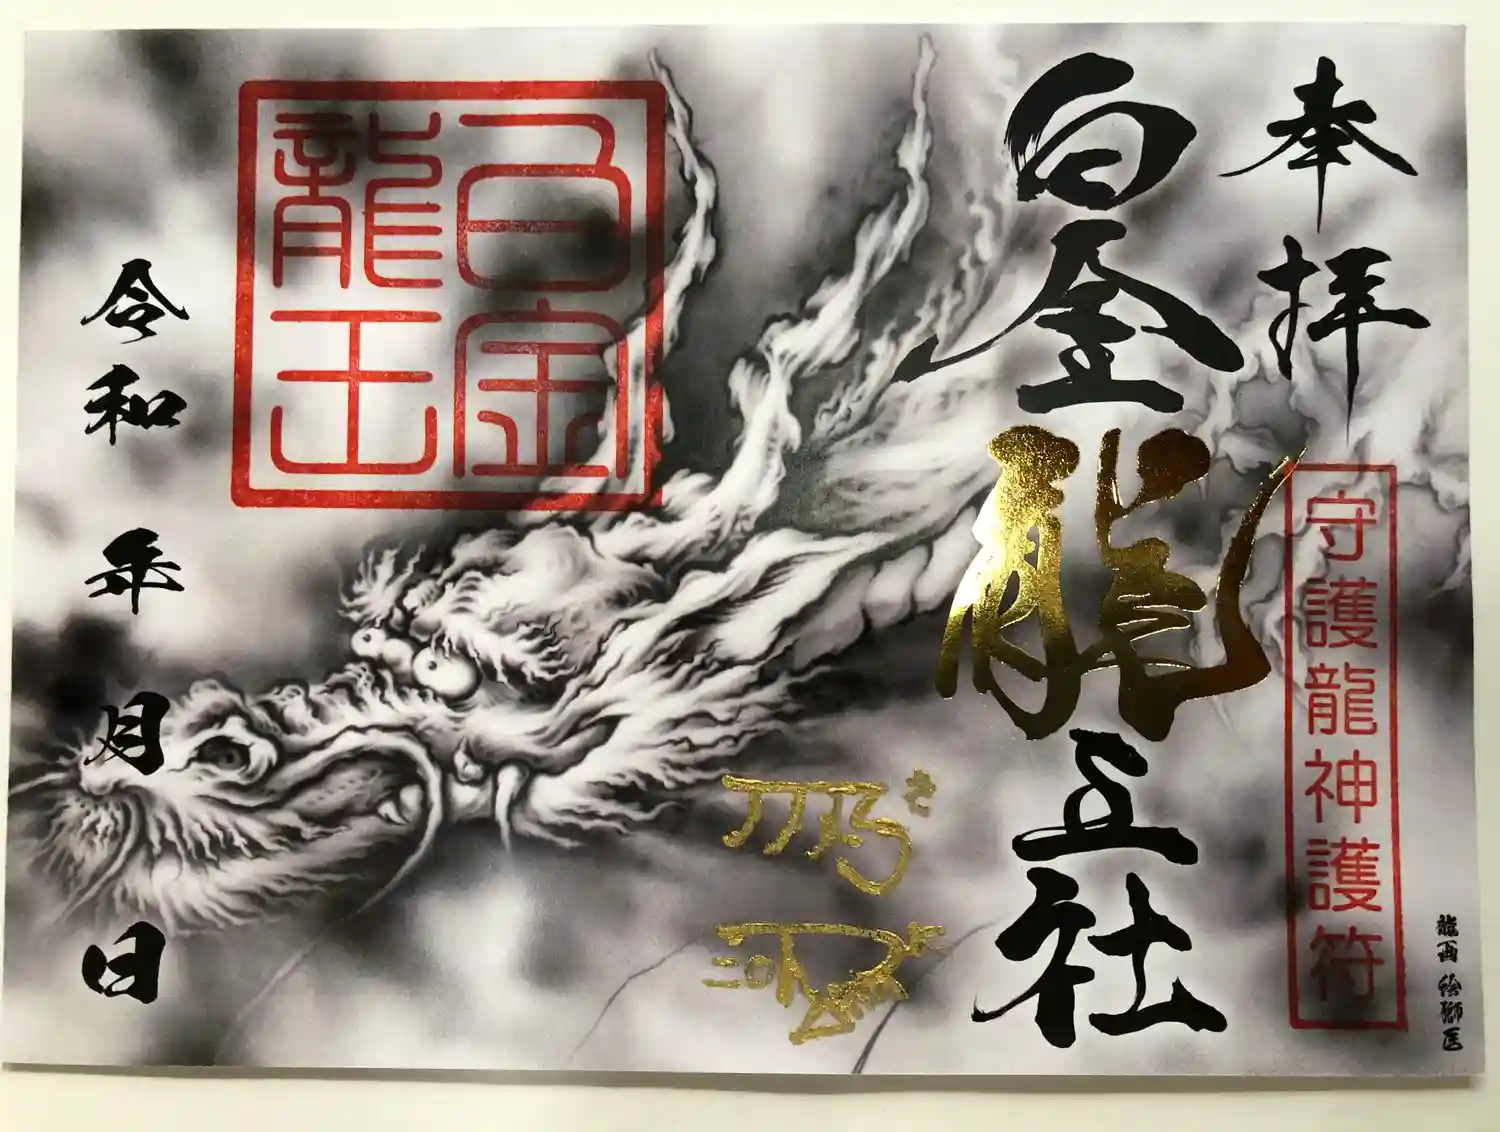 奉拝
白金龍王社
守護龍神護符
白金
龍王
令和 年 月 日
龍画 絵獅匠